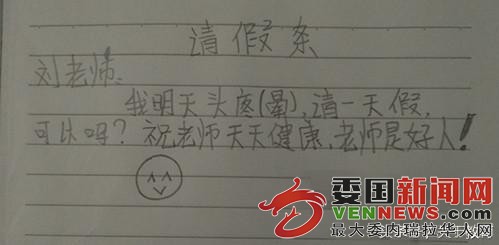 请假条
刘老师、
我明天头疼(晕),请一天假,
可以吗?祝老师天天健康,老师是好人!
委国新闻网
VENNEWS.COM
最大委内瑞拉华人网